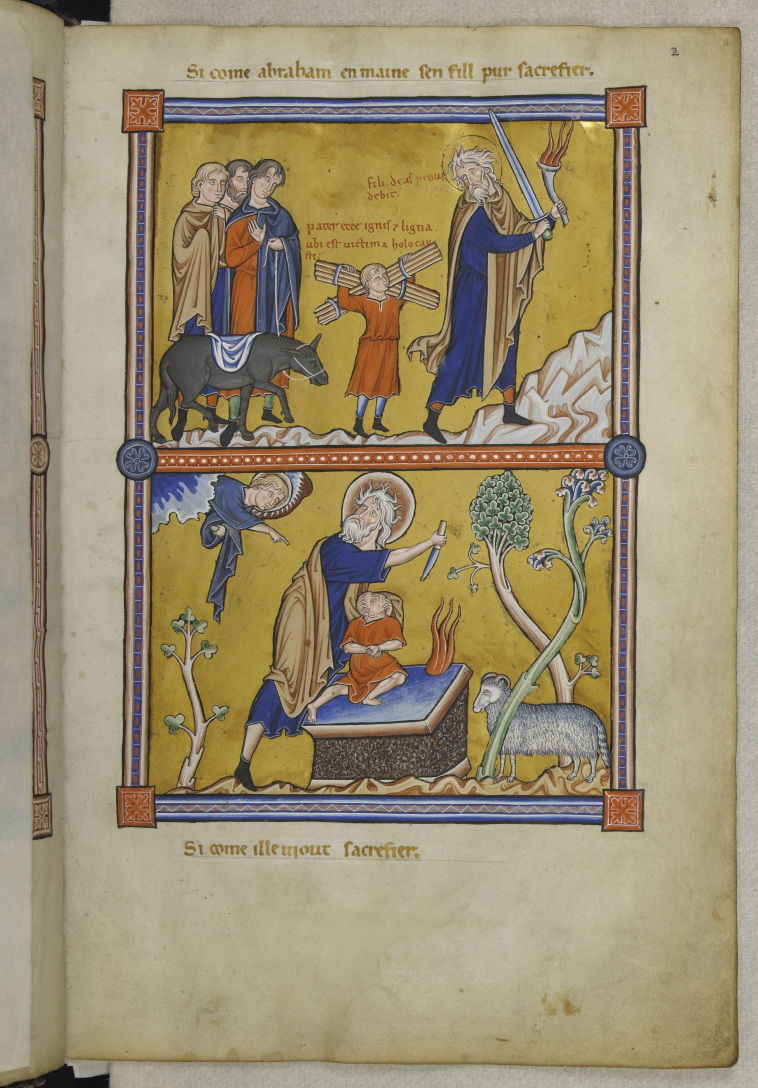 2
Si come abraham en maine sen fill pur sacrefier.
fili. de
debit.
pater ecce ignis ⁊ ligna
ubi est uictima holocau
sti.
Si come ille uiout sacrefier.